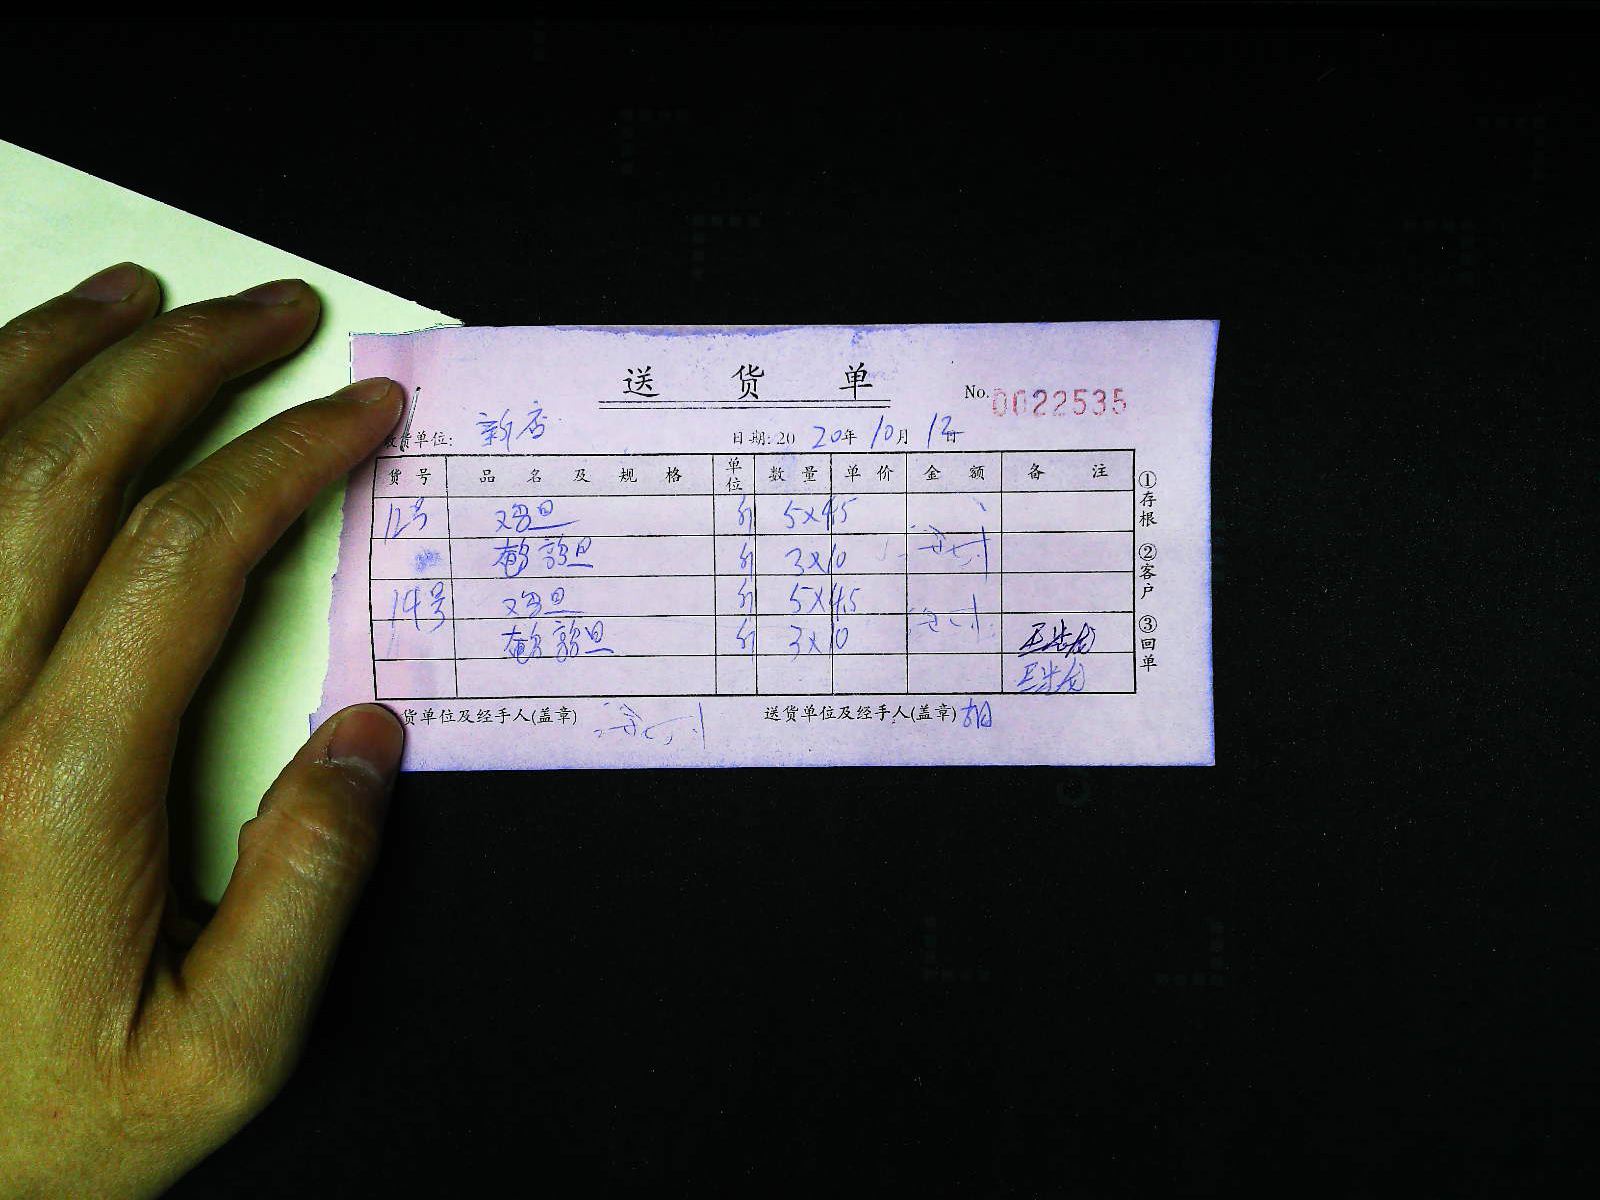 送 货 单
No.0022535
收货单位: 新店 日期: 20 20年 10月 12日
货号 品名及规格 单位 数量 单价 金额 备注
12号 鸡旦 斤 5×4.5
鹌鹑旦 斤 3×10
14号 鸡旦 斤 5×4.5
鹌鹑旦 斤 3×10
货单位及经手人(盖章) 送货单位及经手人(盖章) 胡
①存根 ②客户 ③回单